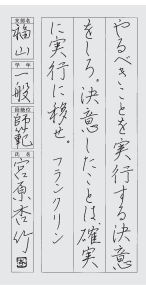 やるべきことを実行する決意
をしろ。決意したことは、確実
に実行に移せ。フランクリン
支部名 福山
学年 一般
段級位 師範
氏名 宮原杏竹